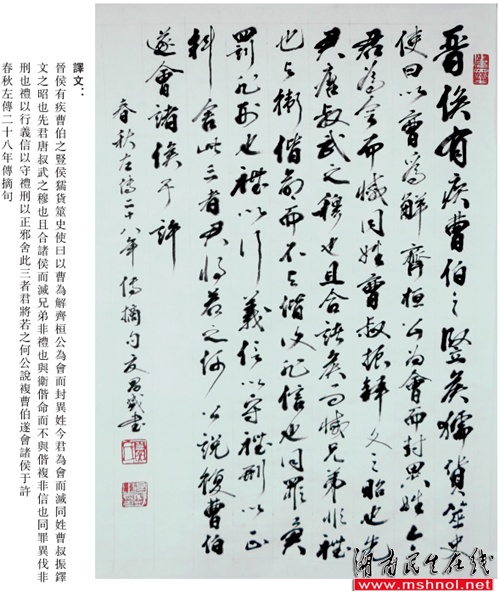 晉侯有疾曹伯之豎侯獳貨筮史
使曰以曹為解齊桓公為會而封異姓今
君為會而滅同姓曹叔振鐸文之昭也先
君唐叔武之穆也且合諸侯而滅兄弟非禮
也與衛偕命而不與偕復非信也同罪異
罰非刑也禮以行義信以守禮刑以正
邪舍此三者君將若之何公說復曹伯
遂會諸侯于許
春秋左傳二十八年傳摘句 書
譯文：
晉侯有疾曹伯之豎侯獳貨筮史使曰以曹為解齊桓公為會而封異姓今君為會而滅同姓曹叔振鐸
文之昭也先君唐叔武之穆也且合諸侯而滅兄弟非禮也與衛偕命而不與偕複非信也同罪異伐非
刑也禮以行義信以守禮刑以正邪舍此三者君將若之何公說複曹伯遂會諸侯于許
春秋左傳二十八年傳摘句
湖南民生在线
www.mshnol.net